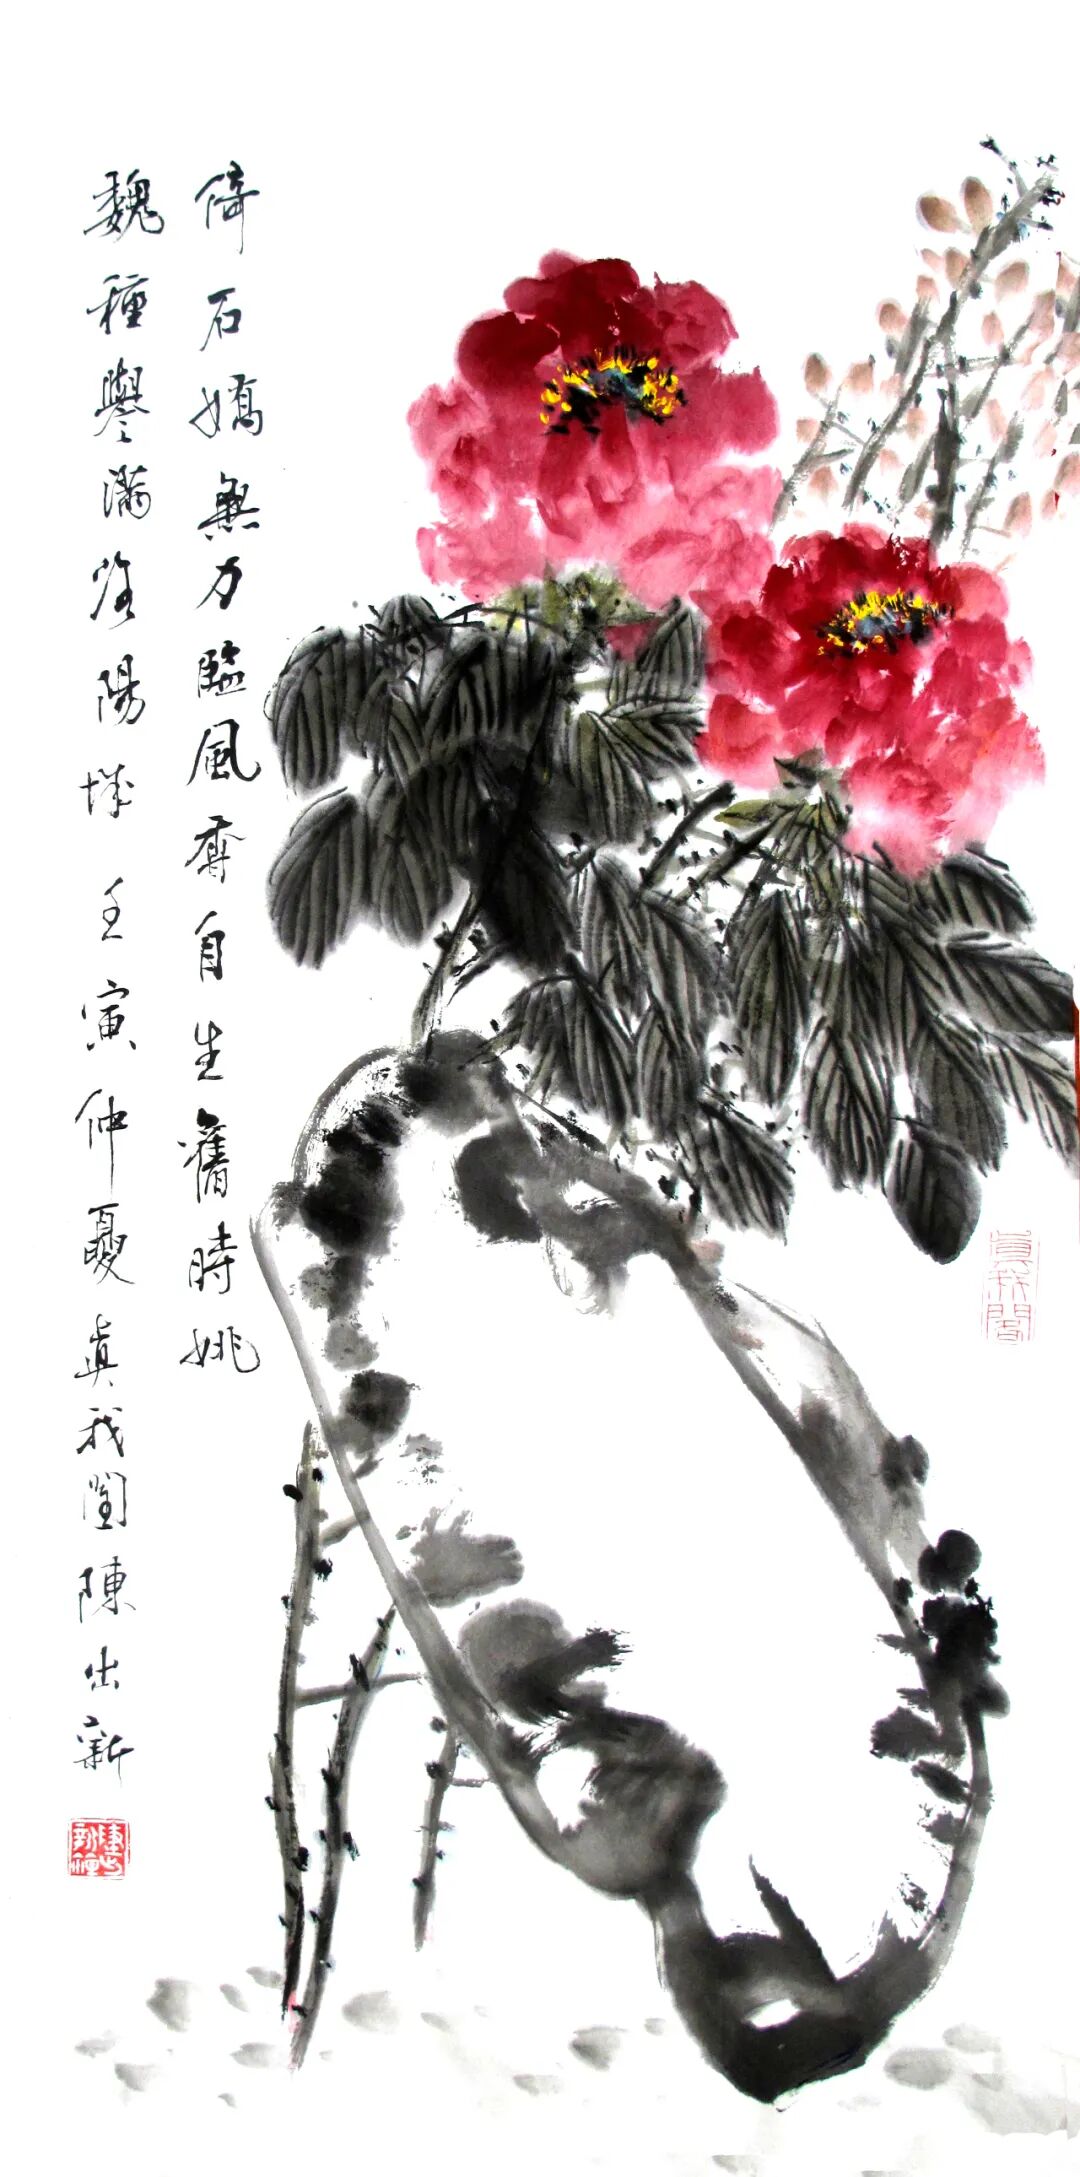 倚石嬌無力臨風香自生舊時姚
魏種譽滿洛陽城 壬寅仲夏真我閣陳出新
真我閣